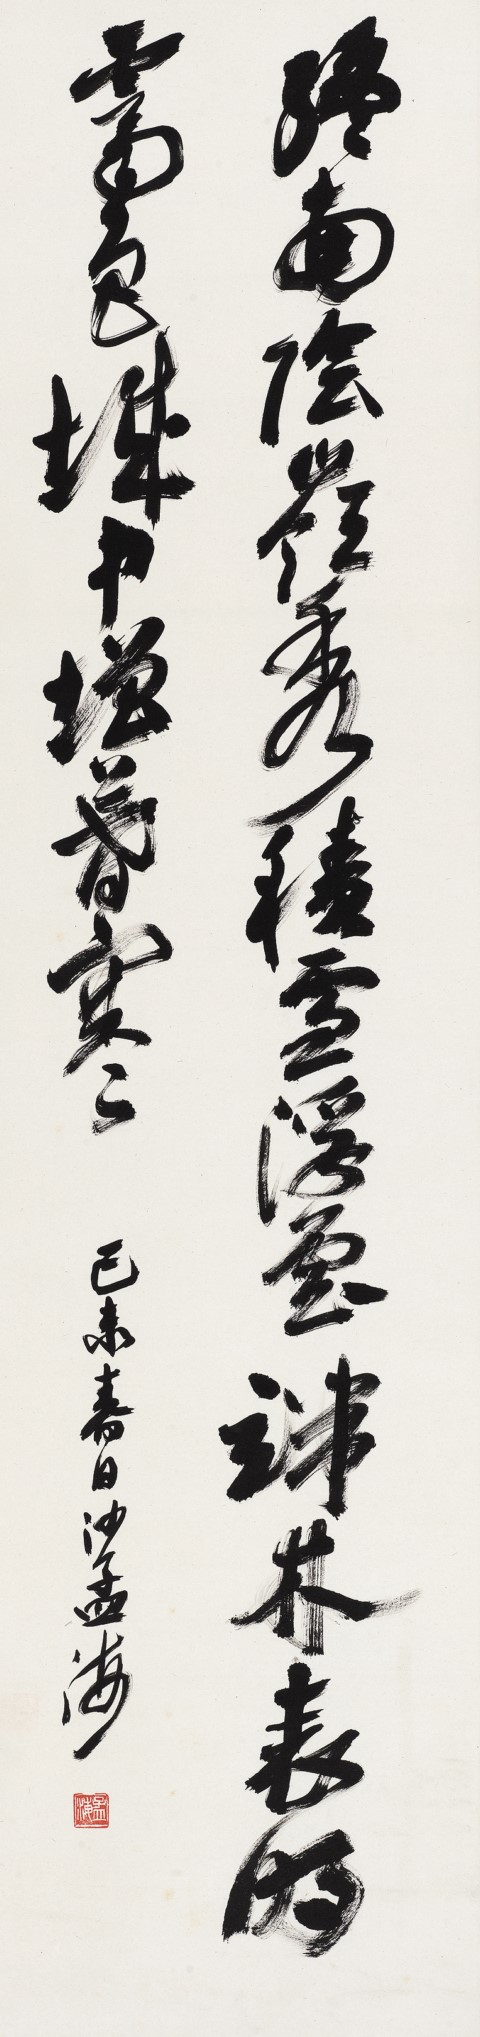 終南陰嶺秀積雪浮雲端林表明
霽色城中增暮寒
己未春日沙孟海
孟海